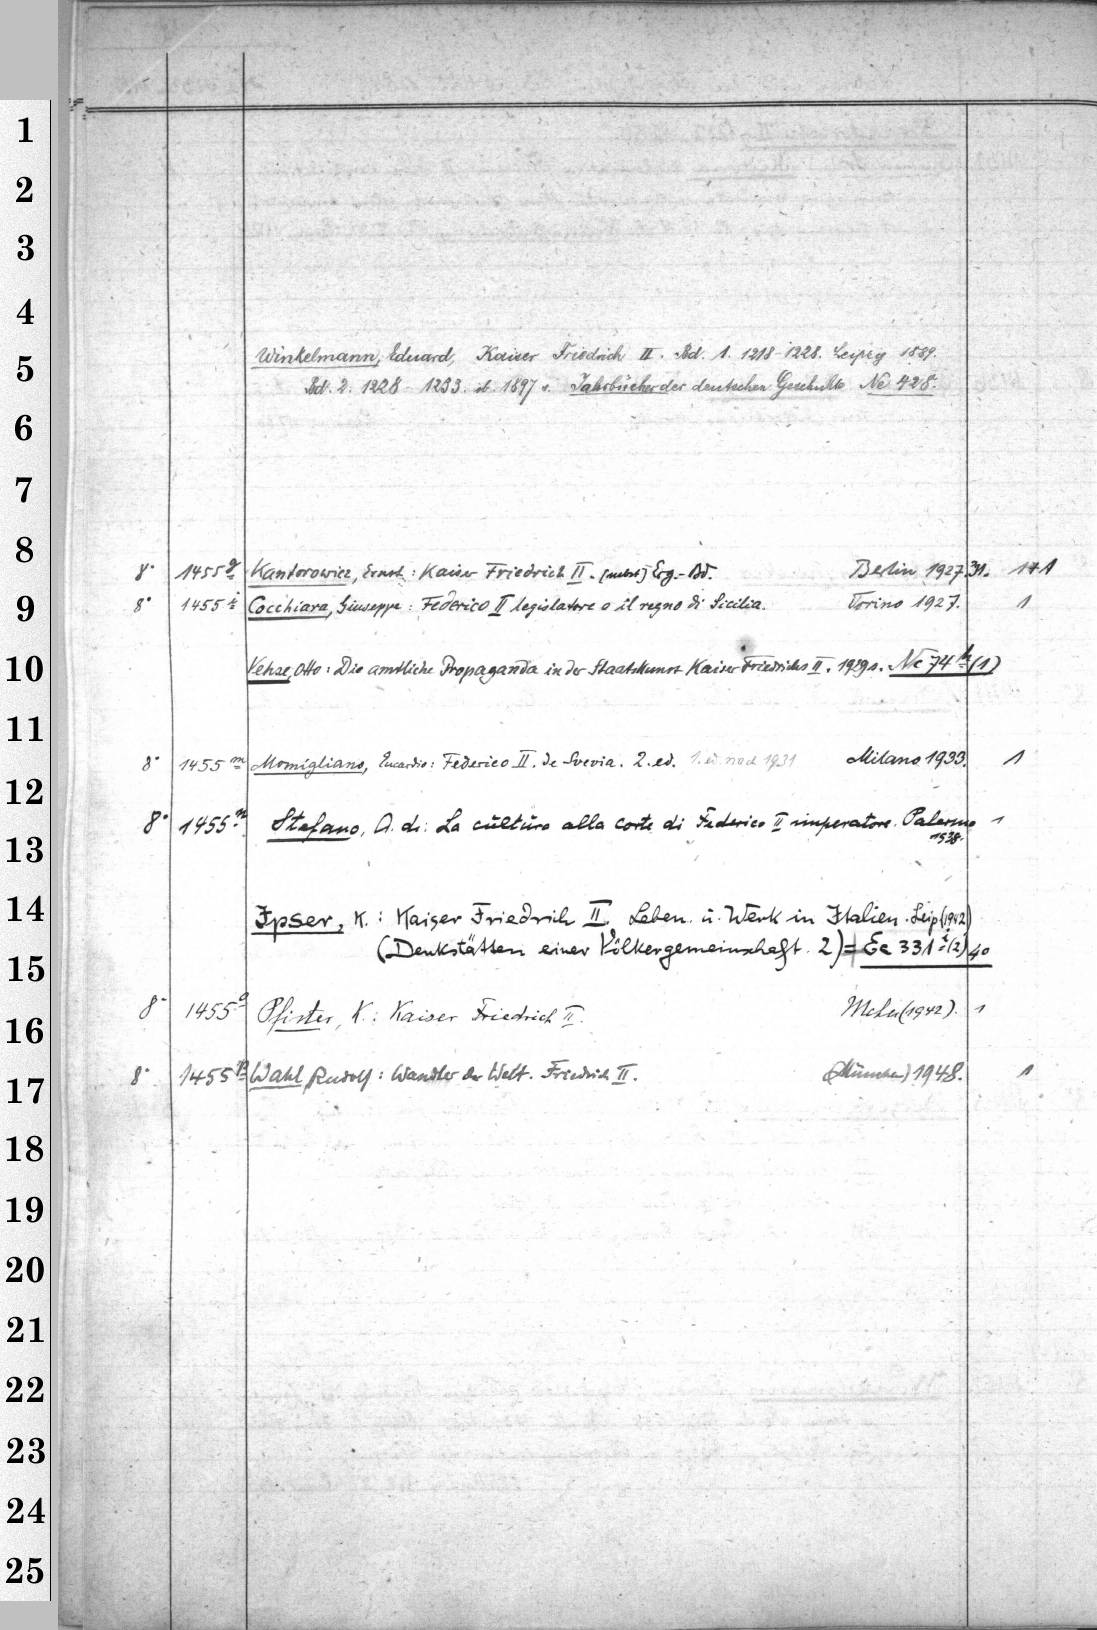 1
2
3
4
Winkelmann, Eduard, Kaiser Friedrich II. Bd. 1. 1218-1228. Leipzig 1889.
5
Bd. 2. 1228 - 1233. 1897 s. Jahrbücher der deutschen Geschichte Ne 428.
6
7
8
8° 1455 g Kantorowicz, Ernst: Kaiser Friedrich II. [nebst] Erg.-Bd. Berlin 1927.31. 1+1
9
8° 1455 i Cocchiara, Giuseppe: Federico II legislatore e il regno di Sicilia. Torino 1927. 1
10
Vehse, Otto: Die amtliche Propaganda in der Staatskunst Kaiser Friedrichs II. 1929 s. Ne 74 k (1)
11
8° 1455 m Momigliano, Eucardio: Federico II. de Svevia. 2. ed. 1. ed. noch 1931 Milano 1933. 1
12
8° 1455 n Stefano, A. de: La cultura alla corte di Federico II imperatore. Palermo 1
1938.
13
14
Ipser, K.: Kaiser Friedrich II. Leben u. Werk in Italien. Leip(1942)
(Denkstätten einer Völkergemeinschaft. 2) = Ec 331 i (2) 40
15
8° 1455 o Pfister, K.: Kaiser Friedrich II. Mchn (1942). 1
16
8° 1455 p Wahl, Rudolf: Wandler der Welt. Friedrich II. (München) 1948. 1
17
18
19
20
21
22
23
24
25